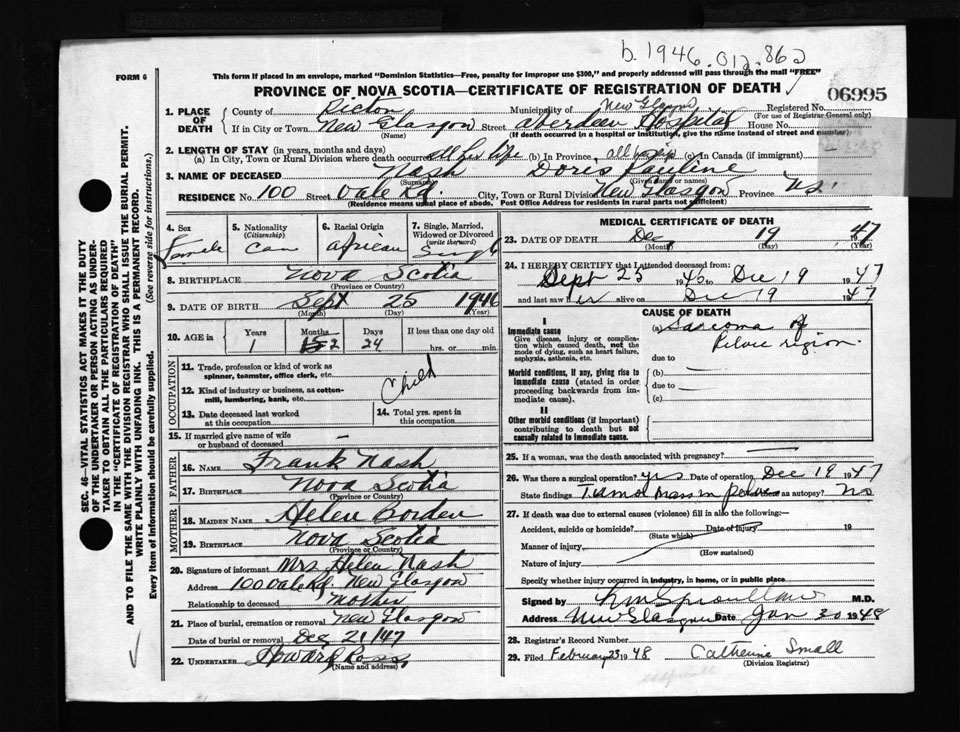 b. 1946. 012. 862
FORM 6
This form if placed in an envelope, marked "Dominion Statistics—Free, penalty for improper use $300," and properly addressed will pass through the mail "FREE"
PROVINCE OF NOVA SCOTIA—CERTIFICATE OF REGISTRATION OF DEATH
06995
1. PLACE OF DEATH
County of Pictou Municipality of New Glasgow Registered No.
(For use of Registrar General only)
If in City or Town New Glasgow Street Aberdeen Hospital House No.
(Name) (If death occurred in a hospital or institution, give the name instead of street and number)
2. LENGTH OF STAY (in years, months and days)
(a) In City, Town or Rural Division where death occurred all her life (b) In Province, all her life (c) In Canada (if immigrant)
3. NAME OF DECEASED Nash Doris
(Surname) (Given name or names)
RESIDENCE No. 100 Street Vale Rd. City, Town or Rural Division New Glasgow Province NS
(Residence means usual place of abode. Post Office Address for residents in rural parts not sufficient)
4. Sex Female
5. Nationality (Citizenship) Can
6. Racial Origin African
7. Single, Married, Widowed or Divorced (write the word) Single
8. BIRTHPLACE Nova Scotia
(Province or Country)
9. DATE OF BIRTH Sept 25 1946
(Month) (Day) (Year)
10. AGE in Years Months Days If less than one day old
1 2 24 hrs. or min.
OCCUPATION
11. Trade, profession or kind of work as spinner, teamster, office clerk, etc.
12. Kind of industry or business, as cotton-mill, lumbering, bank, etc.
Child
13. Date deceased last worked at this occupation
14. Total yrs. spent in this occupation
15. If married give name of wife or husband of deceased —
FATHER
16. NAME Frank Nash
17. BIRTHPLACE Nova Scotia
(Province or Country)
MOTHER
18. MAIDEN NAME Helen Borden
19. BIRTHPLACE Nova Scotia
(Province or Country)
20. Signature of informant Mrs Helen Nash
Address 100 Vale Rd. New Glasgow
Relationship to deceased Mother
21. Place of burial, cremation or removal New Glasgow
Date of burial or removal Dec 21/47
22. UNDERTAKER Howard Ross
(Name and address)
MEDICAL CERTIFICATE OF DEATH
23. DATE OF DEATH Dec 19 1947
(Month) (Day) (Year)
24. I HEREBY CERTIFY that I attended deceased from:
Sept 25 1946 to Dec 19 1947
and last saw her alive on Dec 19 1947
CAUSE OF DEATH
I
Immediate cause
Give disease, injury or complication which caused death, not the mode of dying, such as heart failure, asphyxia, asthenia, etc.
(a) Sarcoma of
Pelvic region.
due to
Morbid conditions, if any, giving rise to immediate cause (stated in order proceeding backwards from immediate cause).
(b) —
due to
(c)
II
Other morbid conditions (if important) contributing to death but not causally related to immediate cause.
25. If a woman, was the death associated with pregnancy? —
26. Was there a surgical operation? yes Date of operation, Dec 19 1947
State findings Tumor mass in Was there an autopsy? No
27. If death was due to external causes (violence) fill in also the following:
Accident, suicide or homicide? Date of injury 19
(State which)
Manner of injury
(How sustained)
Nature of injury
Specify whether injury occurred in industry, in home, or in public place
Signed by M.D.
Address New Glasgow Date Jan 30 1948
28. Registrar's Record Number
29. Filed February 23 1948 Catherine Small
(Division Registrar)
SEC. 46—VITAL STATISTICS ACT MAKES IT THE DUTY
OF THE UNDERTAKER OR PERSON ACTING AS UNDER-
TAKER TO OBTAIN ALL THE PARTICULARS REQUIRED
IN THE "CERTIFICATE OF REGISTRATION OF DEATH"
AND TO FILE THE SAME WITH THE DIVISION REGISTRAR WHO SHALL ISSUE THE BURIAL PERMIT.
WRITE PLAINLY WITH UNFADING INK. THIS IS A PERMANENT RECORD.
Every item of information should be carefully supplied. (See reverse side for instructions.)